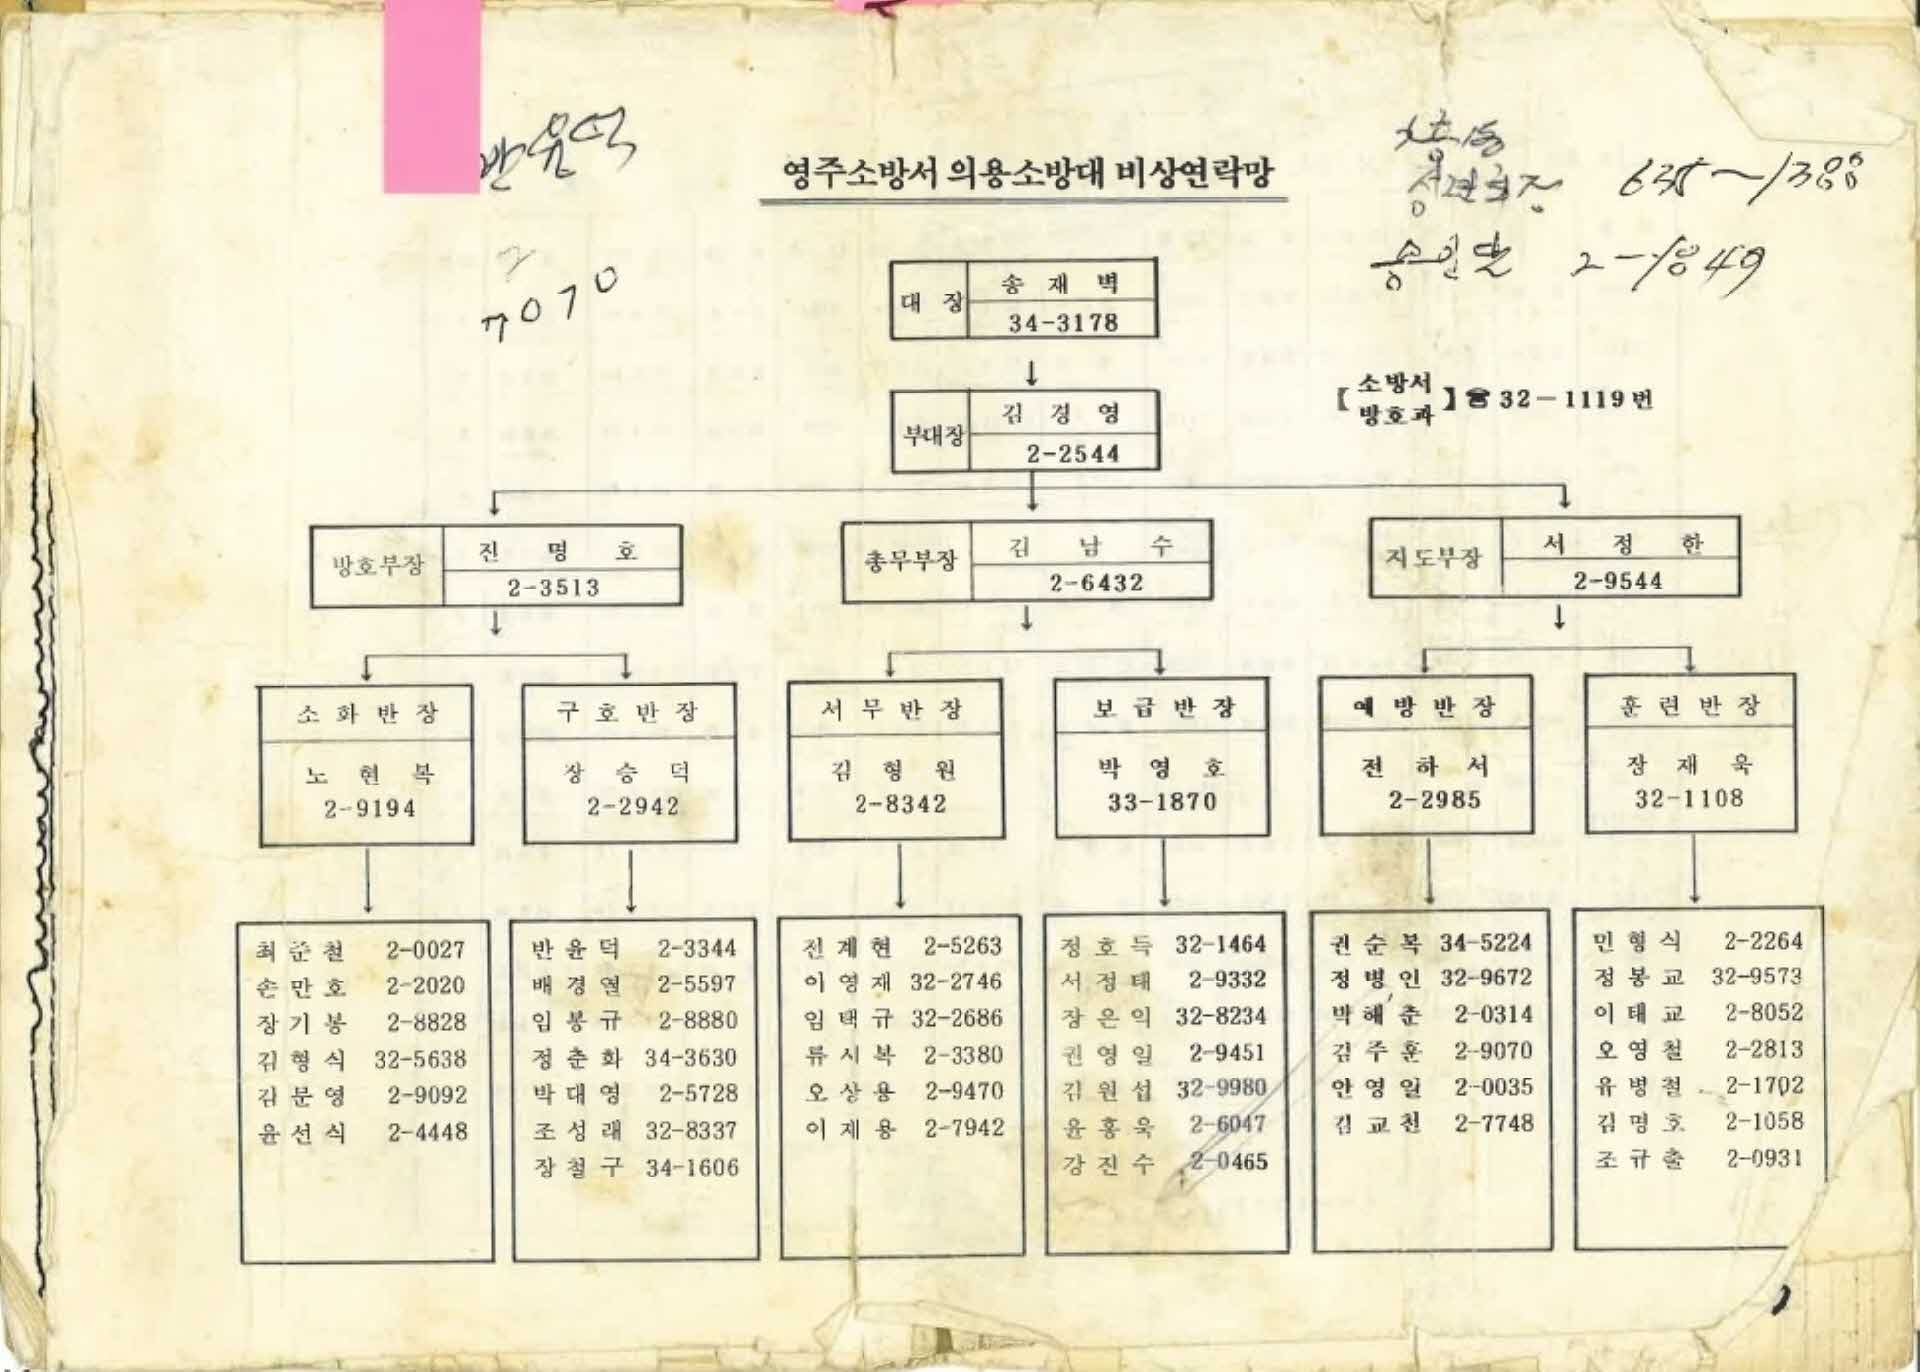 반윤덕
영주소방서 의용소방대 비상연락망
635~1388
2-1849
7070
대 장
송 재 벽
34-3178
부대장
김 경 영
2-2544
【소방서 방호과】☎ 32-1119번
방호부장
진 명 호
2-3513
총무부장
김 남 수
2-6432
지도부장
서 정 한
2-9544
소 화 반 장
노 현 복
2-9194
구 호 반 장
장 승 덕
2-2942
서 무 반 장
김 형 원
2-8342
보 급 반 장
박 영 호
33-1870
예 방 반 장
전 하 서
2-2985
훈 련 반 장
장 재 욱
32-1108
최 준 철 2-0027
손 만 호 2-2020
장 기 봉 2-8828
김 형 식 32-5638
김 문 영 2-9092
윤 선 식 2-4448
반 윤 덕 2-3344
배 경 열 2-5597
임 봉 규 2-8880
정 춘 화 34-3630
박 대 영 2-5728
조 성 래 32-8337
장 철 구 34-1606
전 계 현 2-5263
이 영 재 32-2746
임 택 규 32-2686
류 시 복 2-3380
오 상 용 2-9470
이 재 용 2-7942
정 호 득 32-1464
서 정 태 2-9332
장 은 익 32-8234
권 영 일 2-9451
김 원 섭 32-9980
윤 홍 욱 2-6047
강 진 수 2-0465
권 순 복 34-5224
정 병 인 32-9672
박 해 춘 2-0314
김 주 훈 2-9070
안 영 일 2-0035
김 교 천 2-7748
민 형 식 2-2264
정 봉 교 32-9573
이 태 교 2-8052
오 영 철 2-2813
유 병 철 2-1702
김 명 호 2-1058
조 규 출 2-0931